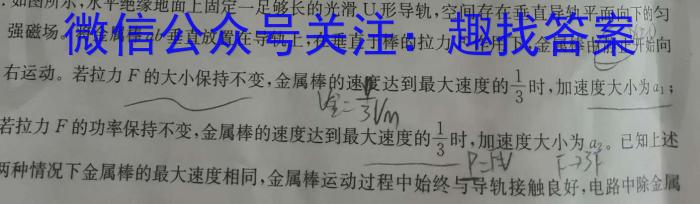 .如图所示,水平绝缘地面上固定一足够长的光滑U形导轨,空间存在垂直导轨平面向下的匀
强磁场。
微信公众号关注：趣找答案
向
右运动。若拉力F的大小保持不变,金属棒的速度达到最大速度的1/3时,加速度大小为a₁;
若拉力F的功率保持不变,金属棒的速度达到最大速度的1/3时,加速度大小为a₂。已知上述
P=FV F→3F
两种情况下金属棒的最大速度相同,金属棒运动过程中始终与导轨接触良好,电路中除金属